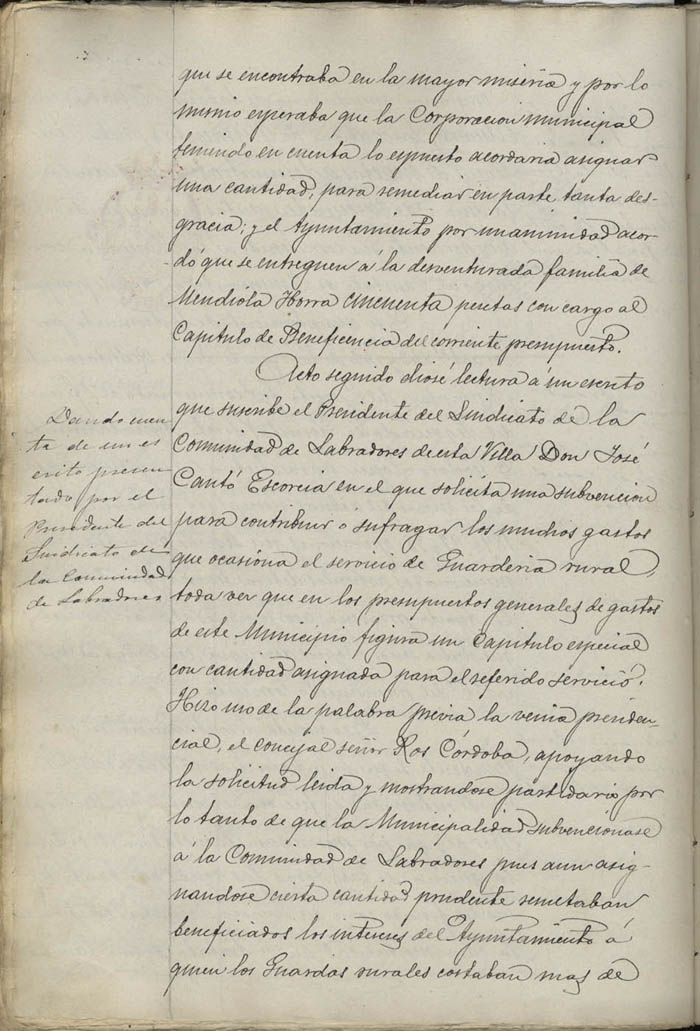 que se encontraba en la mayor miseria y por lo
mismo esperaba que la Corporacion municipal
teniendo en cuenta lo espuesto acordaria asignar
una cantidad, para remediar en parte tanta des-
gracia; y el Ayuntamiento por unanimidad acor-
dó que se entreguen á la desventurada familia de
Mendiola Horra cincuenta pesetas con cargo al
Capitulo de Beneficencia del corriente presupuesto.
Acto seguido diose lectura á un escrito
que suscribe el Presidente del Sindicato de la
Comunidad de Labradores de esta Villa Don José
Cantó Escorcia en el que solicita una subvencion
para contribuir ó sufragar los muchos gastos
que ocasiona el servicio de Guarderia rural,
toda vez que en los presupuestos generales de gastos
de este Municipio figura un Capitulo especial
con cantidad asignada para el referido servicio.
Hizo uso de la palabra previa la venia presiden-
cial, el concejal señor Ros Córdoba, apoyando
la solicitud leida y mostrandose partidario por
lo tanto de que la Municipalidad subvencionase
á la Comunidad de Labradores pues aun asig-
nandose cierta cantidad prudente resultaban
beneficiados los intereses del Ayuntamiento á
quien los Guardas rurales costaban mas de
Dando cuen
ta de un es
crito presen
tado por el
Presidente del
Sindicato de
la Comunidad
de Labradores